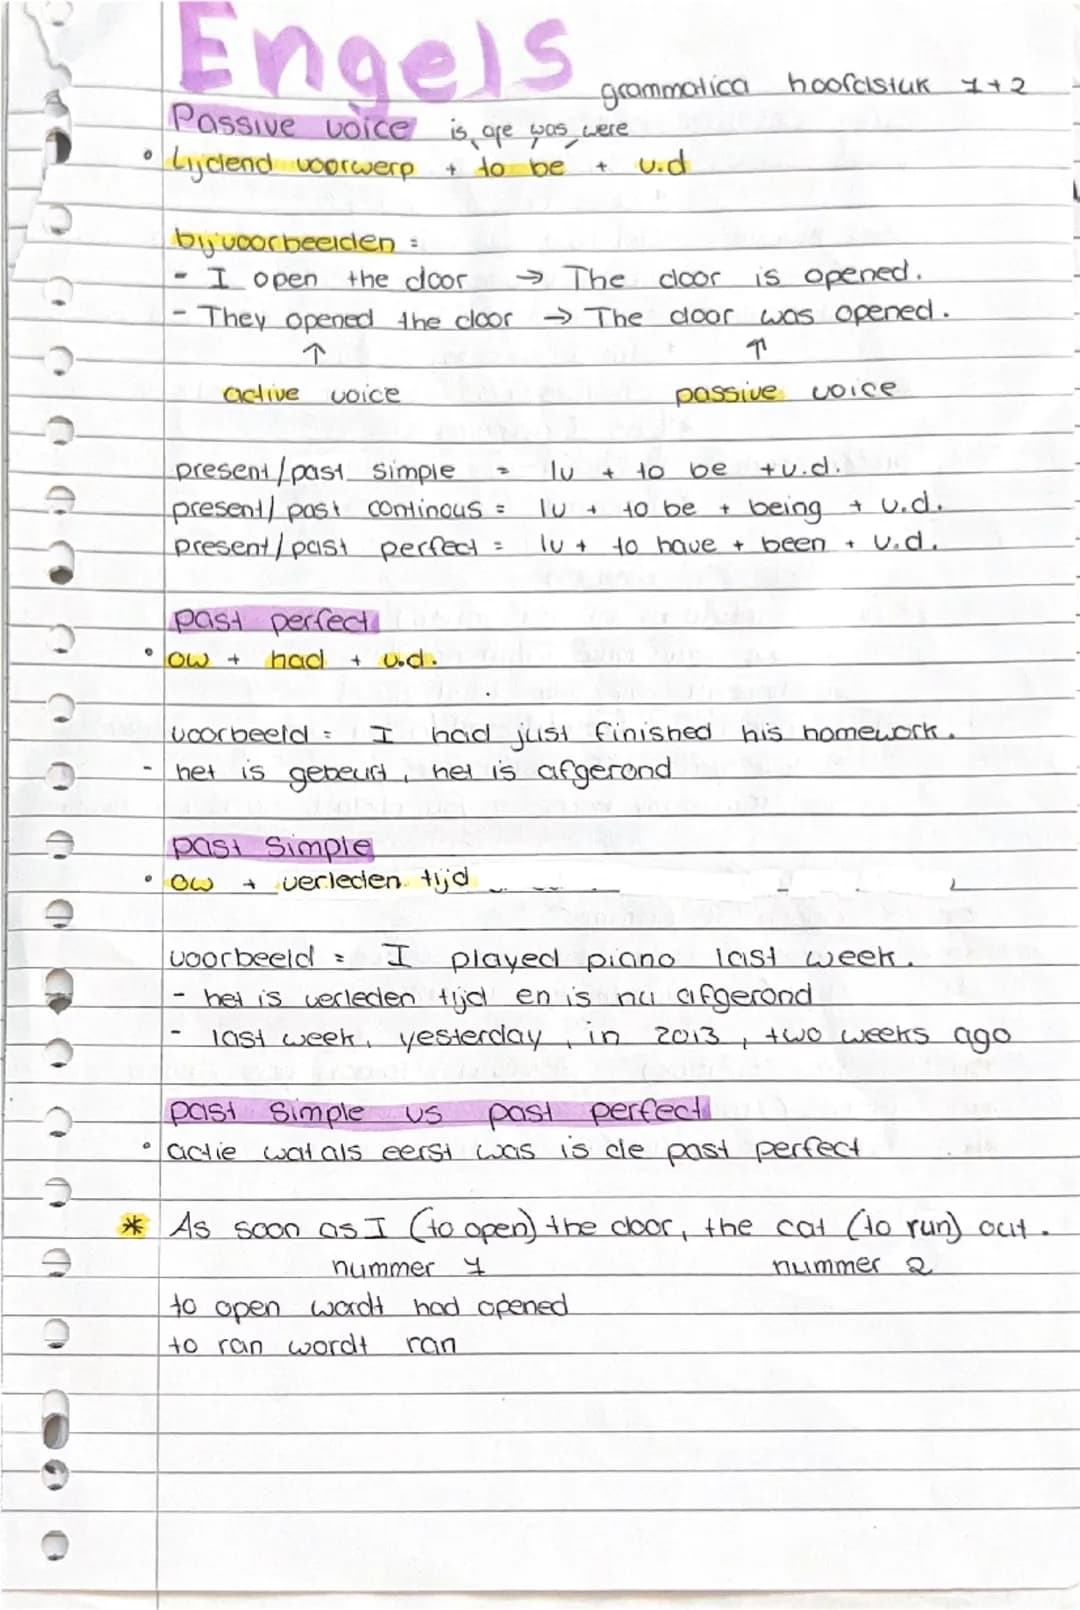 Engels
grammatica hoofdstuk 1+2
Passive voice is, are was, were
• Lijdend voorwerp + to be + v.d
bijvoorbeelden =
- I open the door → The door is opened.
- They opened the door → The door was opened.
↑ ↑
active voice passive voice
present/past simple = lv + to be + v.d.
present/past continous = lv + to be + being + v.d.
present/past perfect = lv + to have + been + v.d.
past perfect
• ow + had + v.d.
voorbeeld = I had just finished his homework.
- het is gebeurt, het is afgerond
past simple
• ow + verleden tijd
voorbeeld = I played piano last week.
- het is verleden tijd en is nu afgerond
- last week, yesterday, in 2013, two weeks ago
past simple vs past perfect
• actie wat als eerst was is de past perfect
* As soon as I (to open) the door, the cat (to run) out.
nummer 1 nummer 2
to open wordt had opened
to ran wordt ran